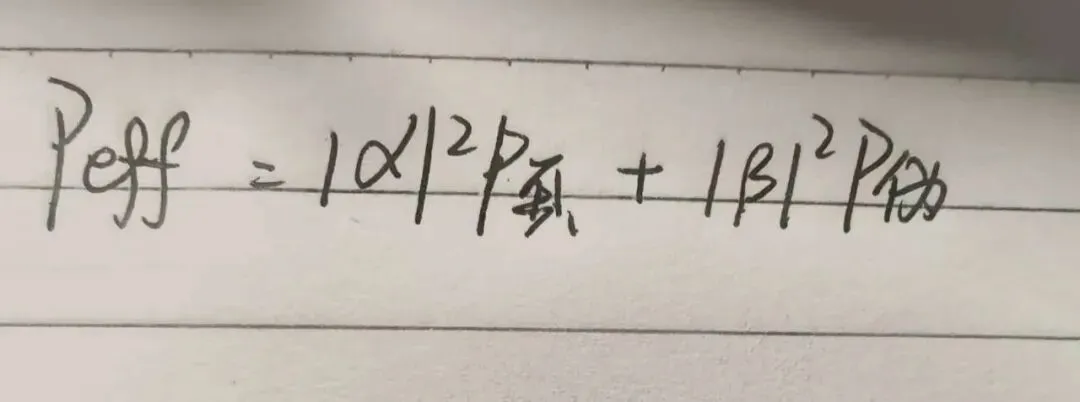 Peff = |α|²P + |β|²P